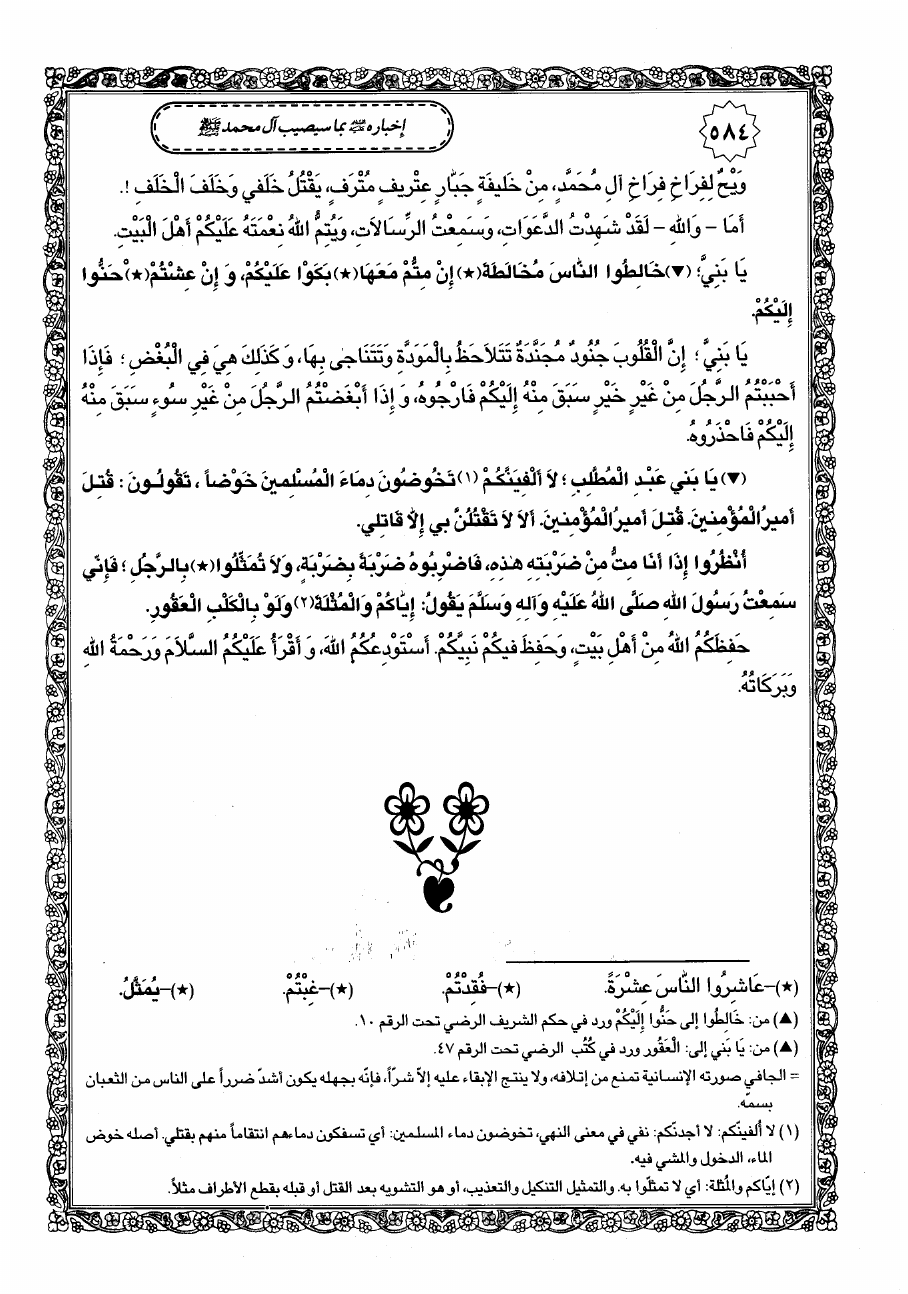 ٥٨٤
إخباره عليه السلام بما سيصيب آل محمد ﷺ
وَيْحٌ لِفِرَاخِ فِرَاخِ آلِ مُحَمَّدٍ، مِنْ خَلِيفَةٍ جَبَّارٍ عِتْرِيفٍ مُتْرَفٍ، يَقْتُلُ خَلَفي وَخَلَفَ الْخَلَفِ !.
أَمَا – وَاللهِ – لَقَدْ شَهِدْتُ الدَّعَوَاتِ، وَسَمِعْتُ الرِّسَالاَتِ، وَيُتِمُّ اللهُ نِعْمَتَهُ عَلَيْكُمْ أَهْلَ الْبَيْتِ.
يَا بَنِيَّ؛ (▼)خَالِطُوا النَّاسَ مُخَالَطَةً(★) إِنْ مِتُّمْ مَعَهَا(★)بَكَوْا عَلَيْكُمْ، وَ إِنْ عِشْتُمْ(★)حَنُّوا
إِلَيْكُمْ.
يَا بَنِيَّ ؛ إِنَّ الْقُلُوبَ جُنُودٌ مُجَنَّدَةٌ تَتَلاَحَظُ بِالْمَوَدَّةِ وَتَتَنَاجَى بِهَا، وَ كَذَلِكَ هِيَ فِي الْبُغْضِ ؛ فَإِذَا
أَحْبَبْتُمُ الرَّجُلَ مِنْ غَيْرِ خَيْرٍ سَبَقَ مِنْهُ إِلَيْكُمْ فَارْجُوهُ، وَ إِذَا أَبْغَضْتُمُ الرَّجُلَ مِنْ غَيْرِ سُوءٍ سَبَقَ مِنْهُ
إِلَيْكُمْ فَاحْذَرُوهُ.
(▼) يَا بَنِي عَبْدِ الْمُطَّلِبِ ؛ لاَ أَلْفِيَنَّكُمْ (١) تَخُوضُونَ دِمَاءَ الْمُسْلِمينَ خَوْضاً ، تَقُولُونَ : قُتِلَ
أَميرُالْمُؤْمِنينَ. قُتِلَ أَميرُالْمُؤْمِنينَ. أَلاَ لاَ تَقْتُلُنَّ بي إِلاَّ قَاتِلي.
أُنْظُرُوا إِذَا أَنَا مِتُّ مِنْ ضَرْبَتِهِ هٰذِهِ، فَاضْرِبُوهُ ضَرْبَةً بِضَرْبَةٍ، وَلاَ تُمَثِّلُوا(★) بِالرَّجُلِ ؛ فَإِنّي
سَمِعْتُ رَسُولَ اللهِ صَلَّى اللهُ عَلَيْهِ وَآلِهِ وَسَلَّمَ يَقُولُ: إِيَّاكُمْ وَالْمُثْلَةَ(٢) وَلَوْ بِالْكَلْبِ الْعَقُورِ.
حَفِظَكُمُ اللهُ مِنْ أَهْلِ بَيْتٍ، وَحَفِظَ فيكُمْ نَبِيَّكُمْ. أَسْتَوْدِعُكُمُ اللهَ، وَ أَقْرَأُ عَلَيْكُمُ السَّلاَمَ وَرَحْمَةُ اللهِ
وَبَرَكَاتُهُ.
(★)–عَاشِرُوا النَّاسَ عِشْرَةً. (★)–فُقِدْتُمْ. (★)–غِبْتُمْ. (★)–يُمَثَّلُ.
(▲) من: خَالِطُوا إلى حَنُّوا إِلَيْكُمْ ورد في حكم الشريف الرضي تحت الرقم ١٠.
(▲) من: يَا بَني إلى: الْعَقُور ورد في كُتُب الرضي تحت الرقم ٤٧.
= الجافي صورته الإنسانية تمنع من إتلافه، ولا ينتج الإبقاء عليه إلاّ شرّاً، فإنّه بجهله يكون أشدّ ضرراً على الناس من الثعبان
بسمّه.
(١) لا أُلفينّكم: لا أجدنّكم: نفي في معنى النهي، تخوضون دماء المسلمين: أي تسفكون دماءهم انتقاماً منهم بقتلي. أصله خوض
الماء، الدخول والمشي فيه.
(٢) إيّاكم والمُثلة: أي لا تمثّلوا به. والتمثيل التنكيل والتعذيب، أو هو التشويه بعد القتل أو قبله بقطع الأطراف مثلاً.